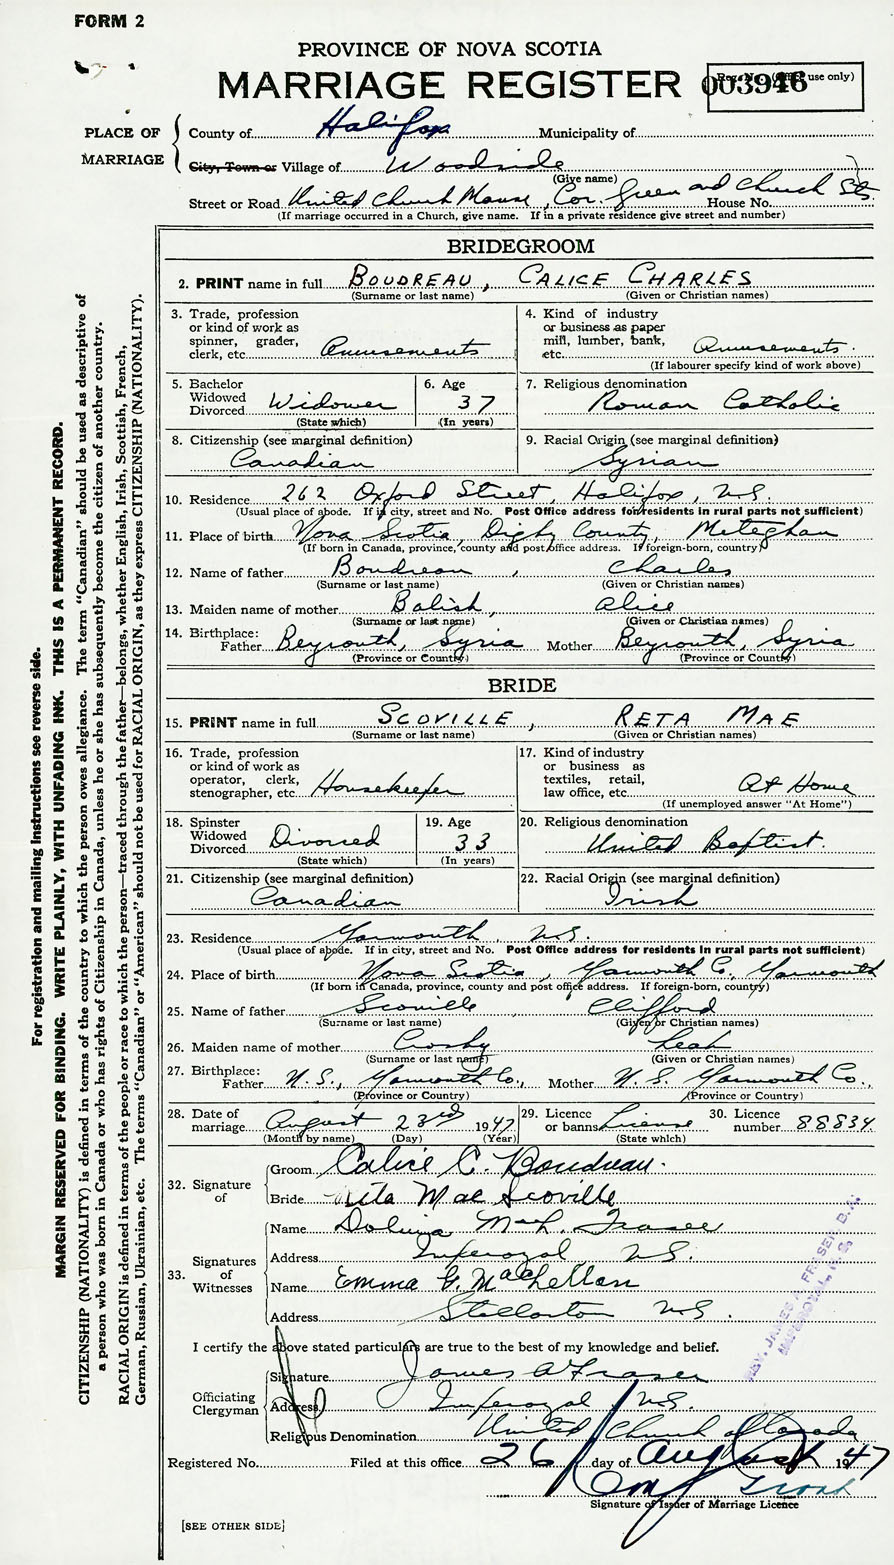 FORM 2
PROVINCE OF NOVA SCOTIA
MARRIAGE REGISTER
Reg. No. (Office use only)
003946
PLACE OF MARRIAGE
County of Halifax Municipality of
City, Town or Village of Woodside
(Give name)
Street or Road United Church Manse, Cor. Green and Church Sts. House No.
(If marriage occurred in a Church, give name. If in a private residence give street and number)
BRIDEGROOM
2. PRINT name in full BOUDREAU, CALICE CHARLES
(Surname or last name) (Given or Christian names)
3. Trade, profession
or kind of work as
spinner, grader,
clerk, etc. Amusements
4. Kind of industry
or business as paper
mill, lumber, bank,
etc. Amusements.
(If labourer specify kind of work above)
5. Bachelor
Widowed
Divorced Widower
(State which)
6. Age
37
(In years)
7. Religious denomination
Roman Catholic
8. Citizenship (see marginal definition)
Canadian
9. Racial Origin (see marginal definition)
Syrian
10. Residence 262 Oxford Street, Halifax, N.S.
(Usual place of abode. If in city, street and No. Post Office address for residents in rural parts not sufficient)
11. Place of birth Nova Scotia, Digby County, Meteghan
(If born in Canada, province, county and post office address. If foreign-born, country)
12. Name of father Boudreau, Charles
(Surname or last name) (Given or Christian names)
13. Maiden name of mother Balish, Alice
(Surname or last name) (Given or Christian names)
14. Birthplace:
Father Beyrouth, Syria Mother Beyrouth, Syria
(Province or Country) (Province or Country)
BRIDE
15. PRINT name in full SCOVILLE, RETA MAE
(Surname or last name) (Given or Christian names)
16. Trade, profession
or kind of work as
operator, clerk,
stenographer, etc. Housekeeper
17. Kind of industry
or business as
textiles, retail,
law office, etc. At Home
(If unemployed answer "At Home")
18. Spinster
Widowed
Divorced Divorced
(State which)
19. Age
33
(In years)
20. Religious denomination
United Baptist.
21. Citizenship (see marginal definition)
Canadian
22. Racial Origin (see marginal definition)
Irish
23. Residence Yarmouth, N.S.
(Usual place of abode. If in city, street and No. Post Office address for residents in rural parts not sufficient)
24. Place of birth Nova Scotia, Yarmouth Co. Yarmouth
(If born in Canada, province, county and post office address. If foreign-born, country)
25. Name of father Scoville Clifford
(Surname or last name) (Given or Christian names)
26. Maiden name of mother Crosby Leah
(Surname or last name) (Given or Christian names)
27. Birthplace:
Father N.S., Yarmouth Co., Mother N.S. Yarmouth Co.,
(Province or Country) (Province or Country)
28. Date of
marriage August 23rd 1947
(Month by name) (Day) (Year)
29. Licence
or banns License
(State which)
30. Licence
number 88834
32. Signature of
Groom Calice C. Boudreau.
Bride Rita Mae Scoville
33. Signatures of Witnesses
Name McL. Fraser
Address Imperoyal N.S.
Name Emma G. MacLellan
Address Stellarton N.S.
I certify the above stated particulars are true to the best of my knowledge and belief.
Officiating Clergyman
Signature James A Fraser
Address Imperoyal N.S.
Religious Denomination United Church of Canada
REV. JAMES A. FRASER, B.A.
IMPEROYAL, N. S.
Registered No. Filed at this office 26 day of August 1947
Signature of Issuer of Marriage Licence
[SEE OTHER SIDE]
For registration and mailing instructions see reverse side.
MARGIN RESERVED FOR BINDING. WRITE PLAINLY, WITH UNFADING INK. THIS IS A PERMANENT RECORD.
CITIZENSHIP (NATIONALITY) is defined in terms of the country to which the person owes allegiance. The term "Canadian" should be used as descriptive of
a person who was born in Canada or who has rights of Citizenship in Canada, unless he or she has subsequently become the citizen of another country.
RACIAL ORIGIN is defined in terms of the people or race to which the person—traced through the father—belongs, whether English, Irish, Scottish, French,
German, Russian, Ukrainian, etc. The terms "Canadian" or "American" should not be used for RACIAL ORIGIN, as they express CITIZENSHIP (NATIONALITY).